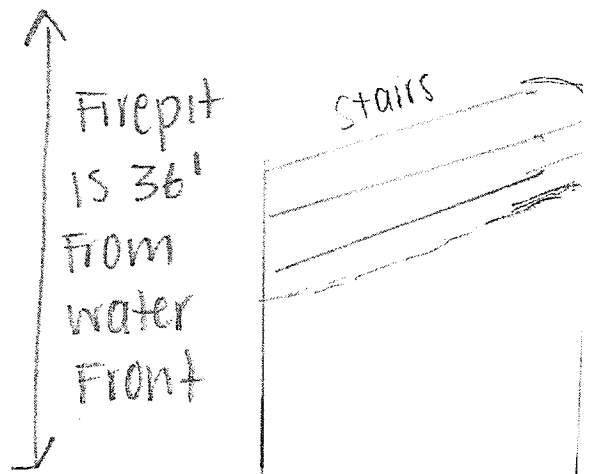 Firepit
is 36'
From
water
Front
Stairs